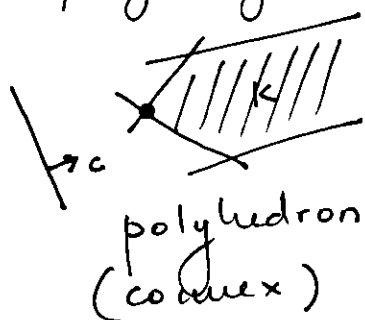 K
c
polyhedron
(convex)